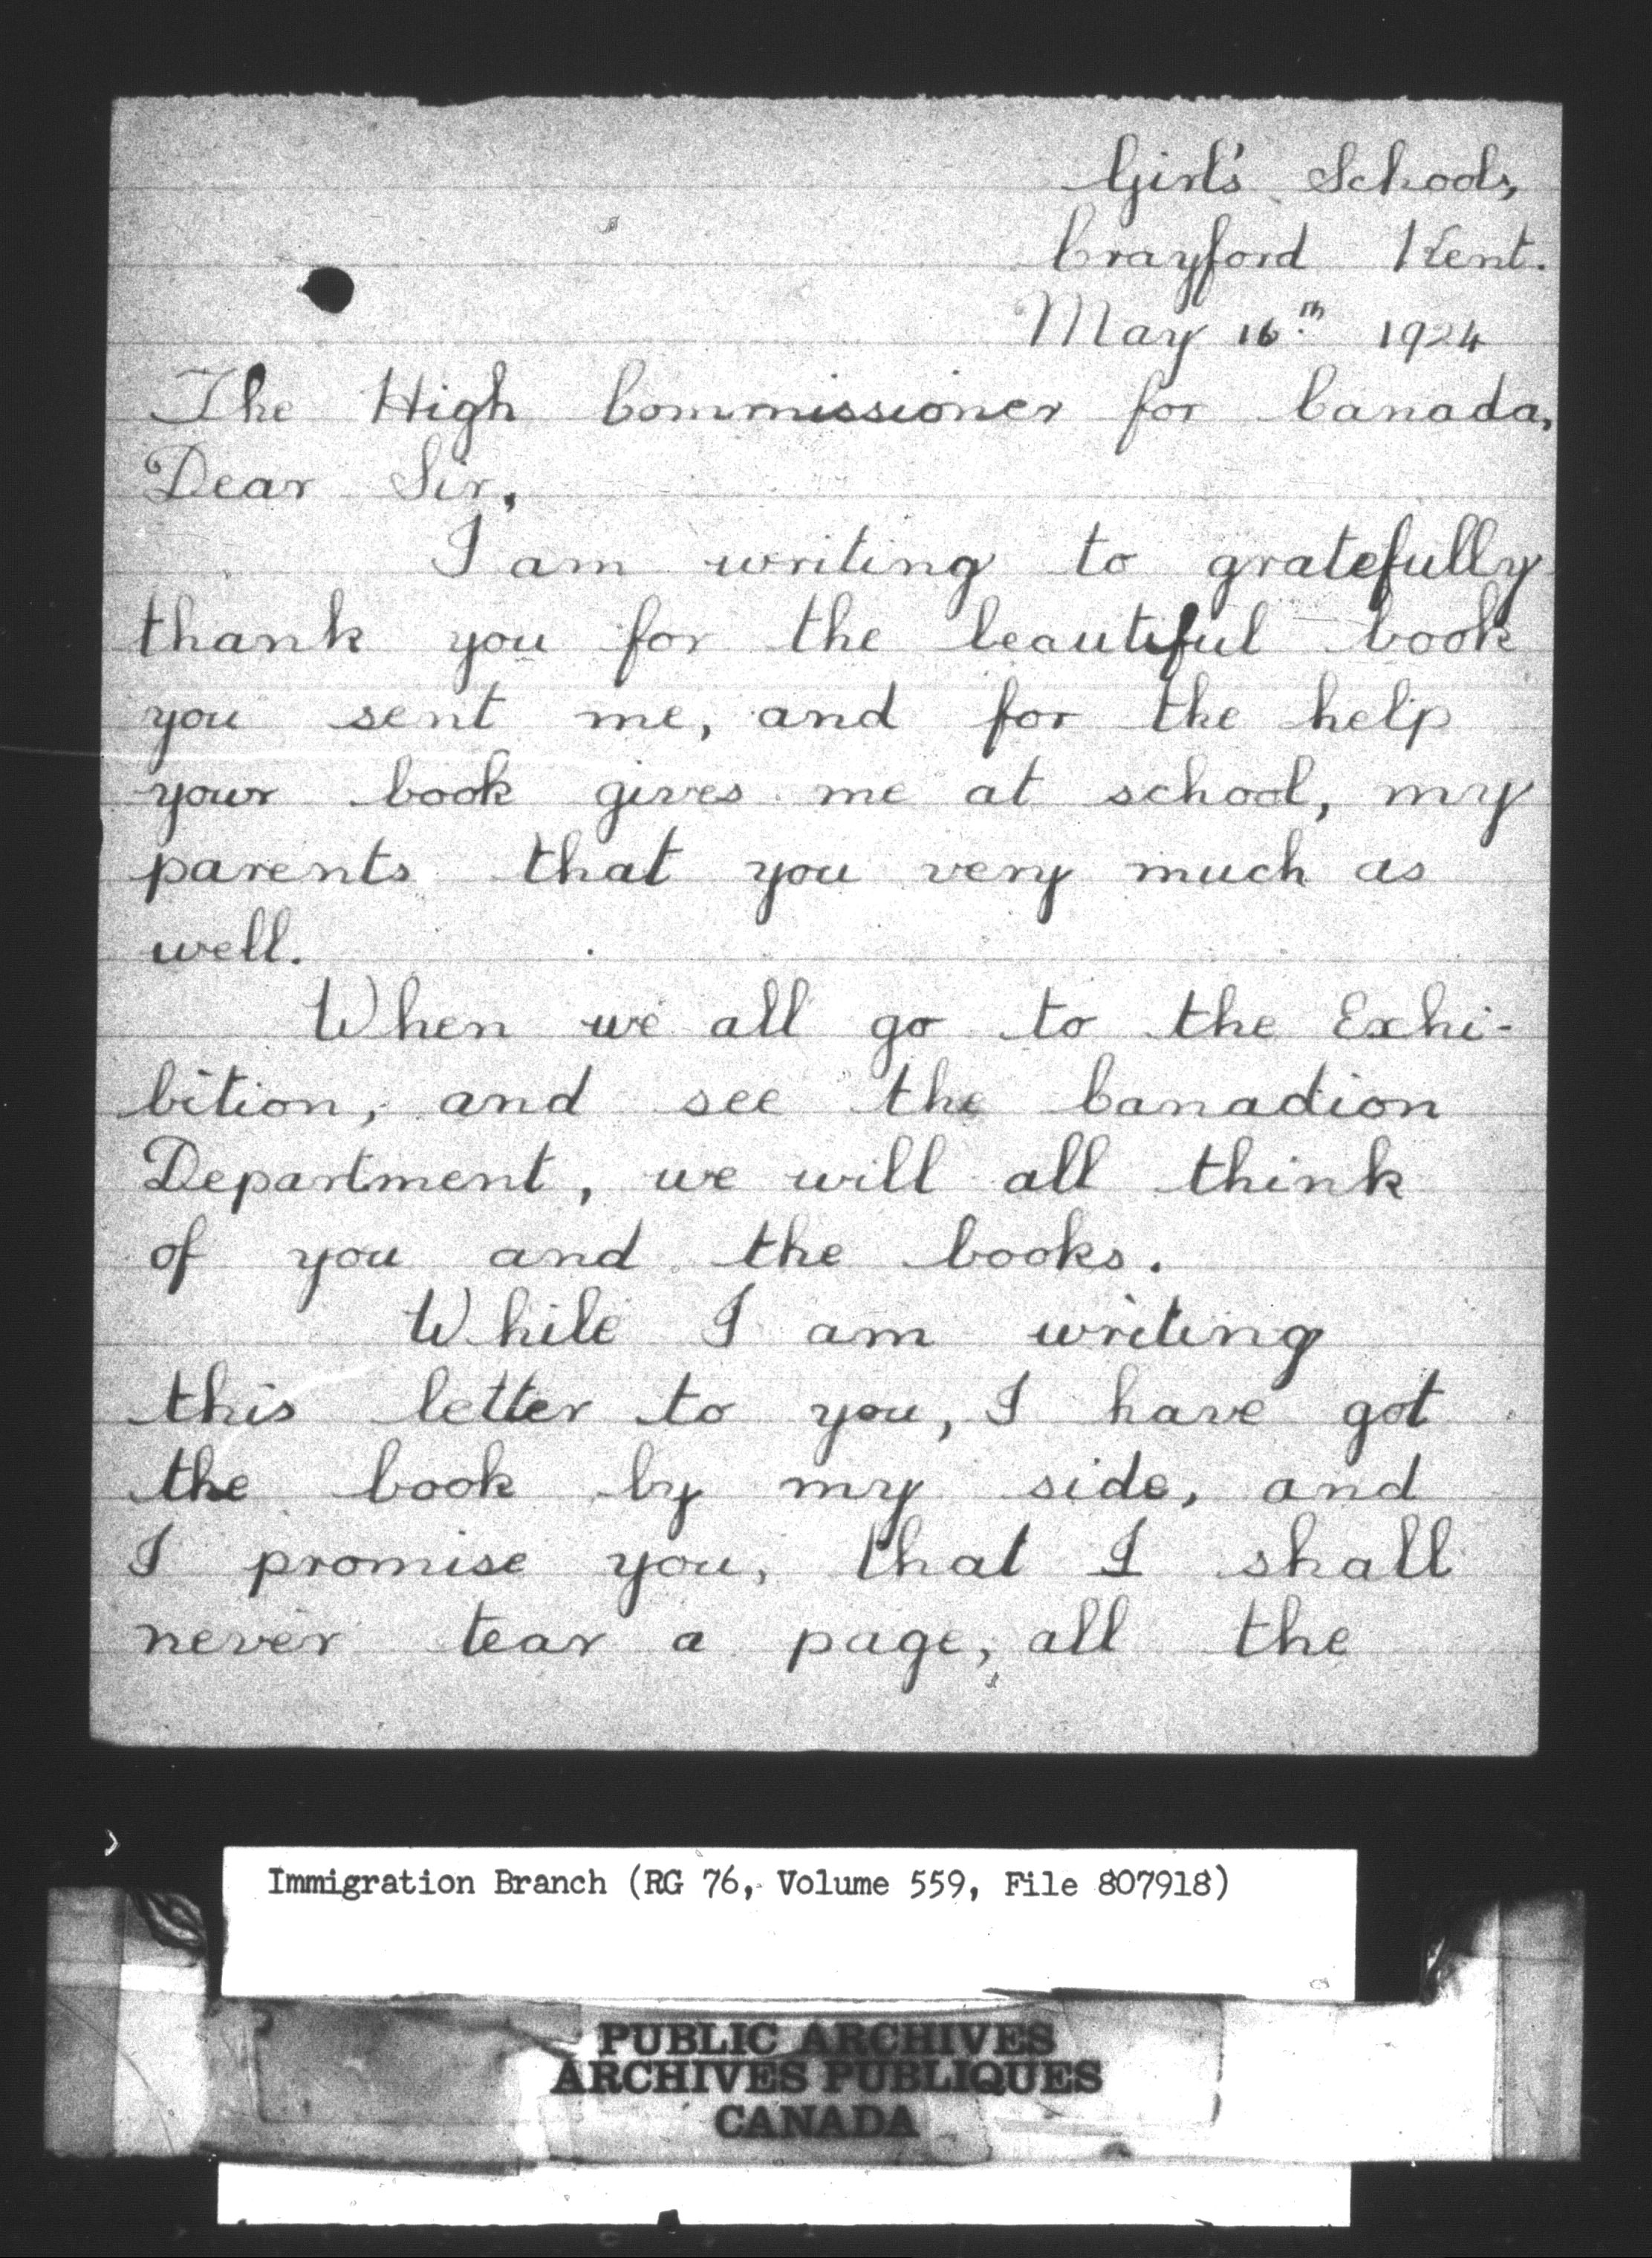 Girl's School,
Crayford Kent.
May 16th 1924
The High Commissioner for Canada,
Dear Sir,
I am writing to gratefully
thank you for the beautiful book
you sent me, and for the help
your book gives me at school, my
parents that you very much as
well.
When we all go to the Exhi-
bition, and see the Canadion
Department, we will all think
of you and the books.
While I am writing
this letter to you, I have got
the book by my side, and
I promise you, that I shall
never tear a page, all the
Immigration Branch (RG 76, Volume 559, File 807918)
PUBLIC ARCHIVES
ARCHIVES PUBLIQUES
CANADA